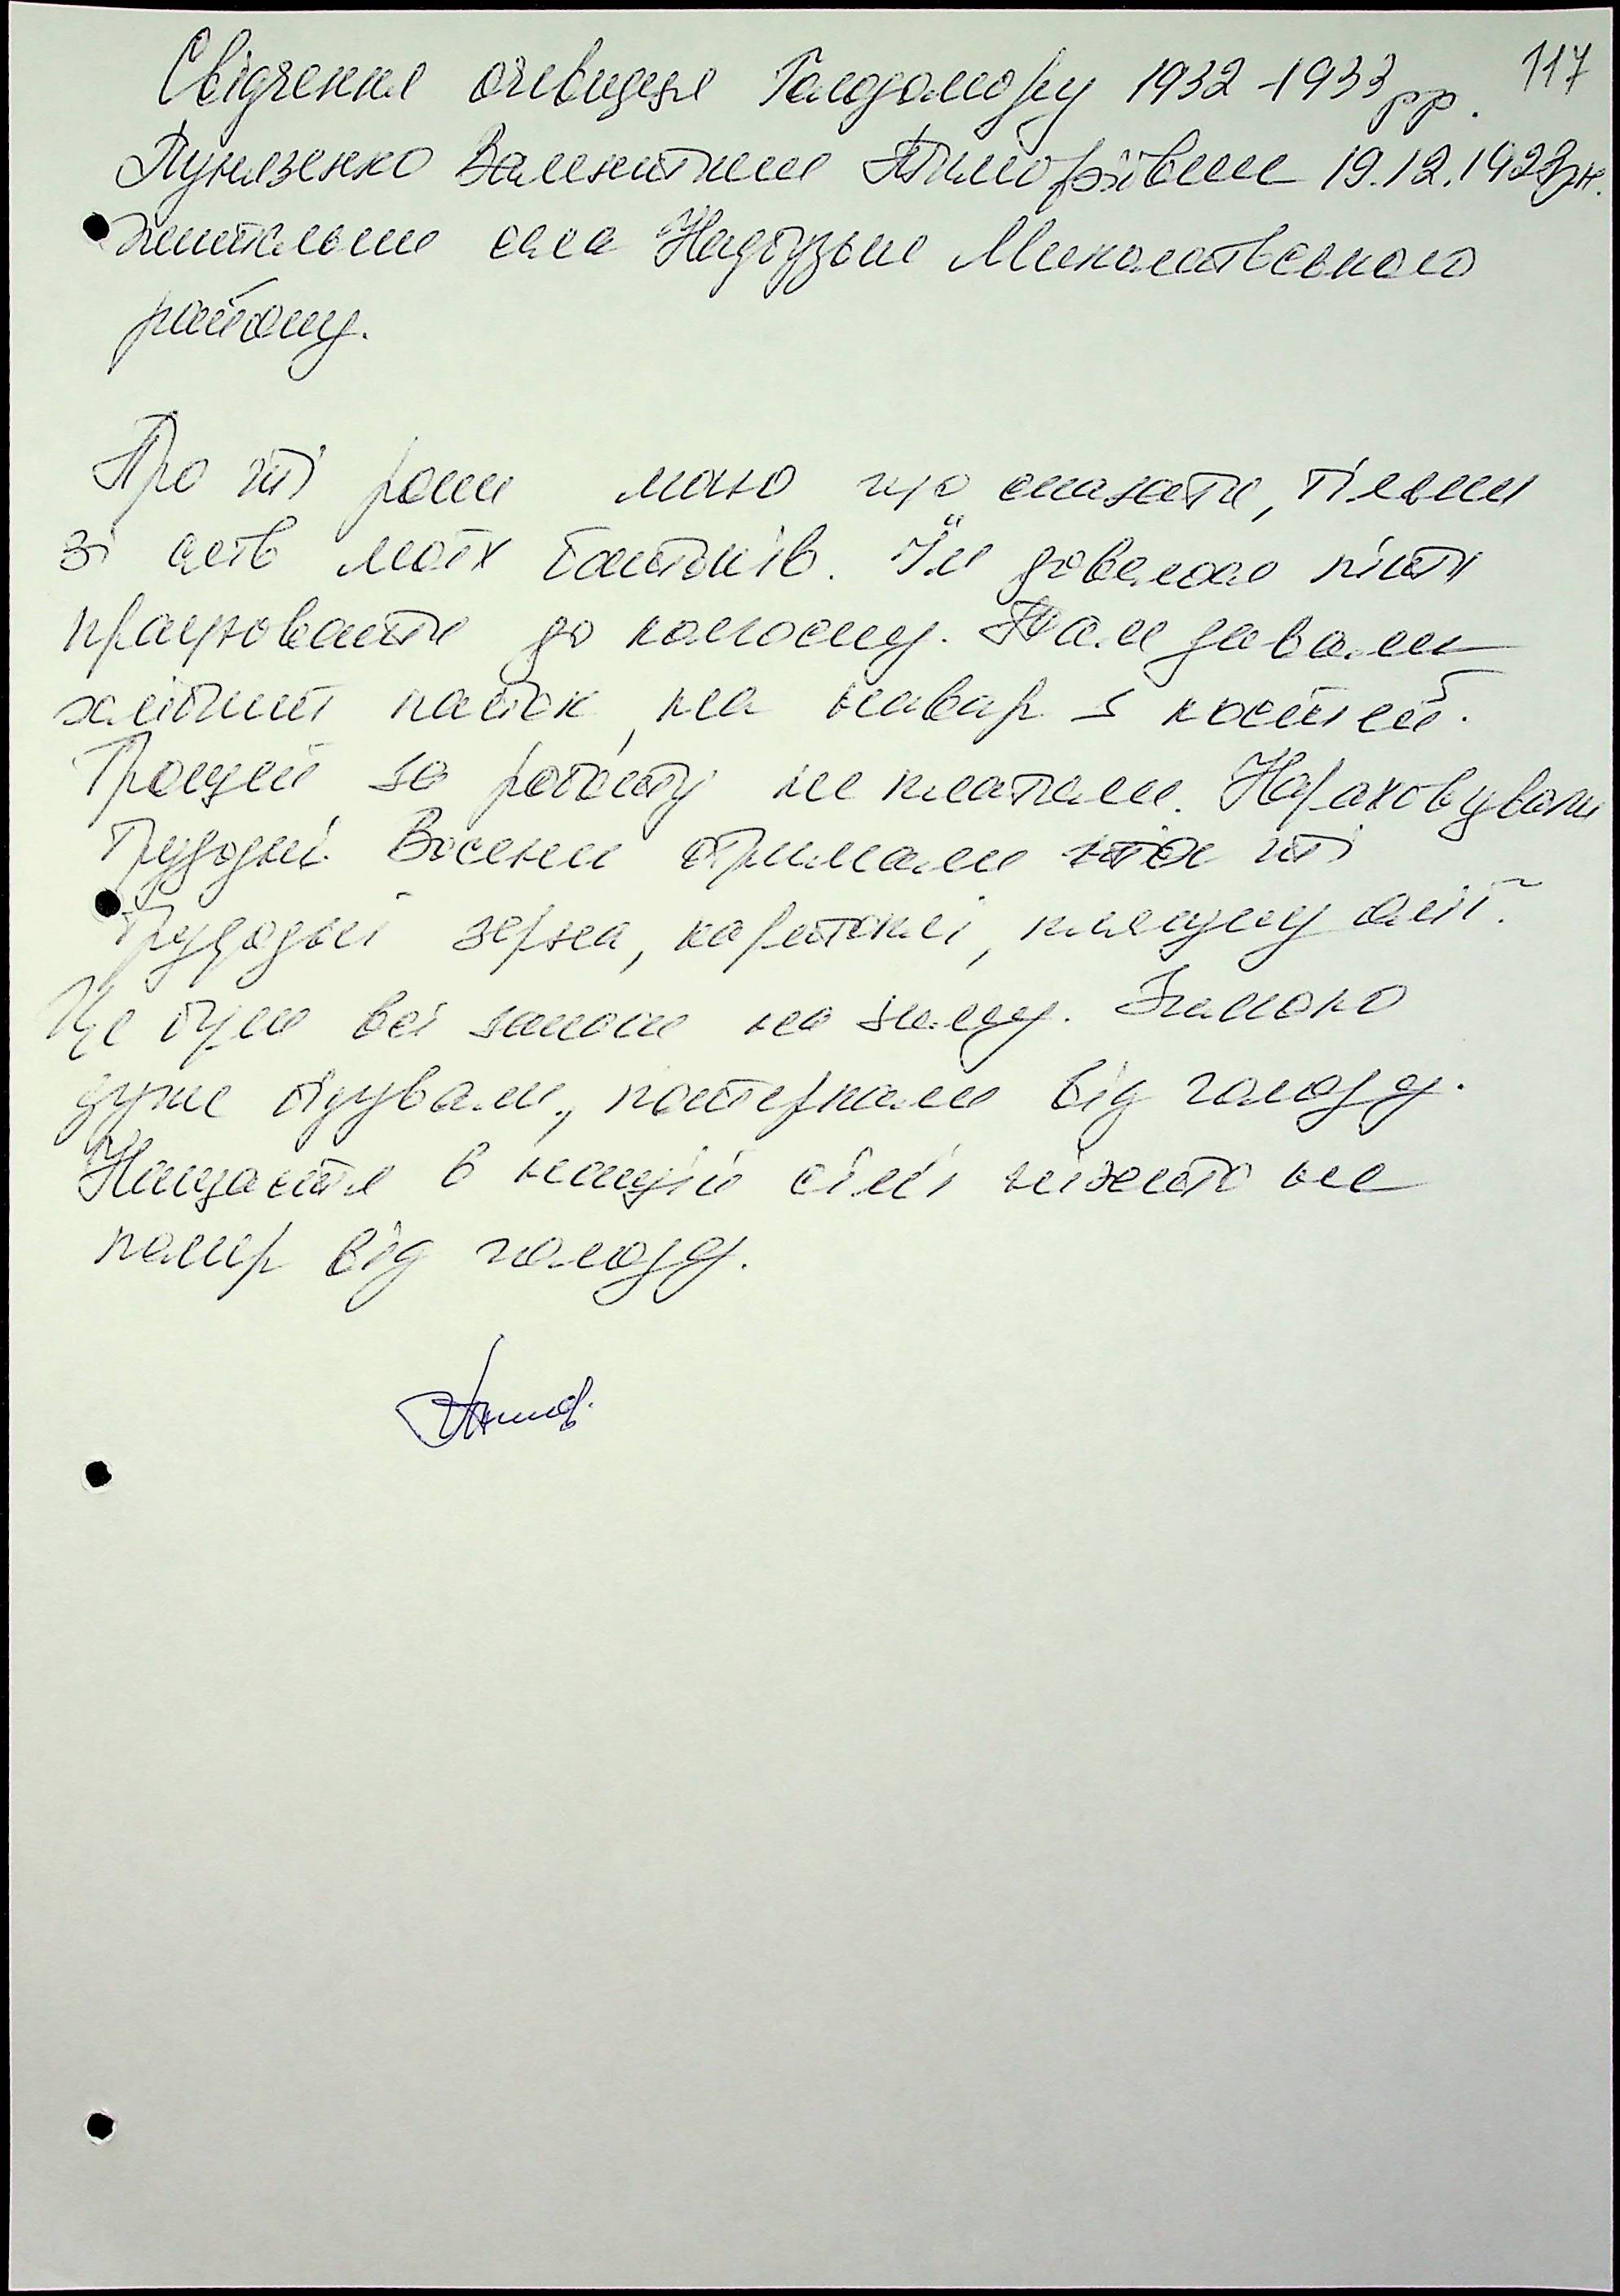 Свідчення очевидця Голодомору 1932-1933 рр. 117
Валентини Тимофіївни 19.12.1923рн.
жительки села Надбузьке Миколаївського
району.
Про ті роки мало що сказати, тільки
зі слів моїх батьків. Їм довелося піти
працювати до колгоспу. Там давали
хлібний пайок, на навар з костей.
Грошей за роботу не платили. Нараховували
трудодні. Восени отримали на ті
трудодні зерна, картоплі, пляшку олії.
Це були всі запаси на зиму.
дуже бідували, потерпали від голоду.
На щастя в нашій сім'ї ніхто не
помер від голоду.